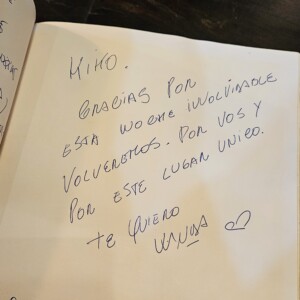 KIKO.
GRACIAS POR
ESTA NOCHE INOLVIDABLE
VOLVEREMOS. POR VOS Y
POR ESTE LUGAR UNICO.
TE QUIERO